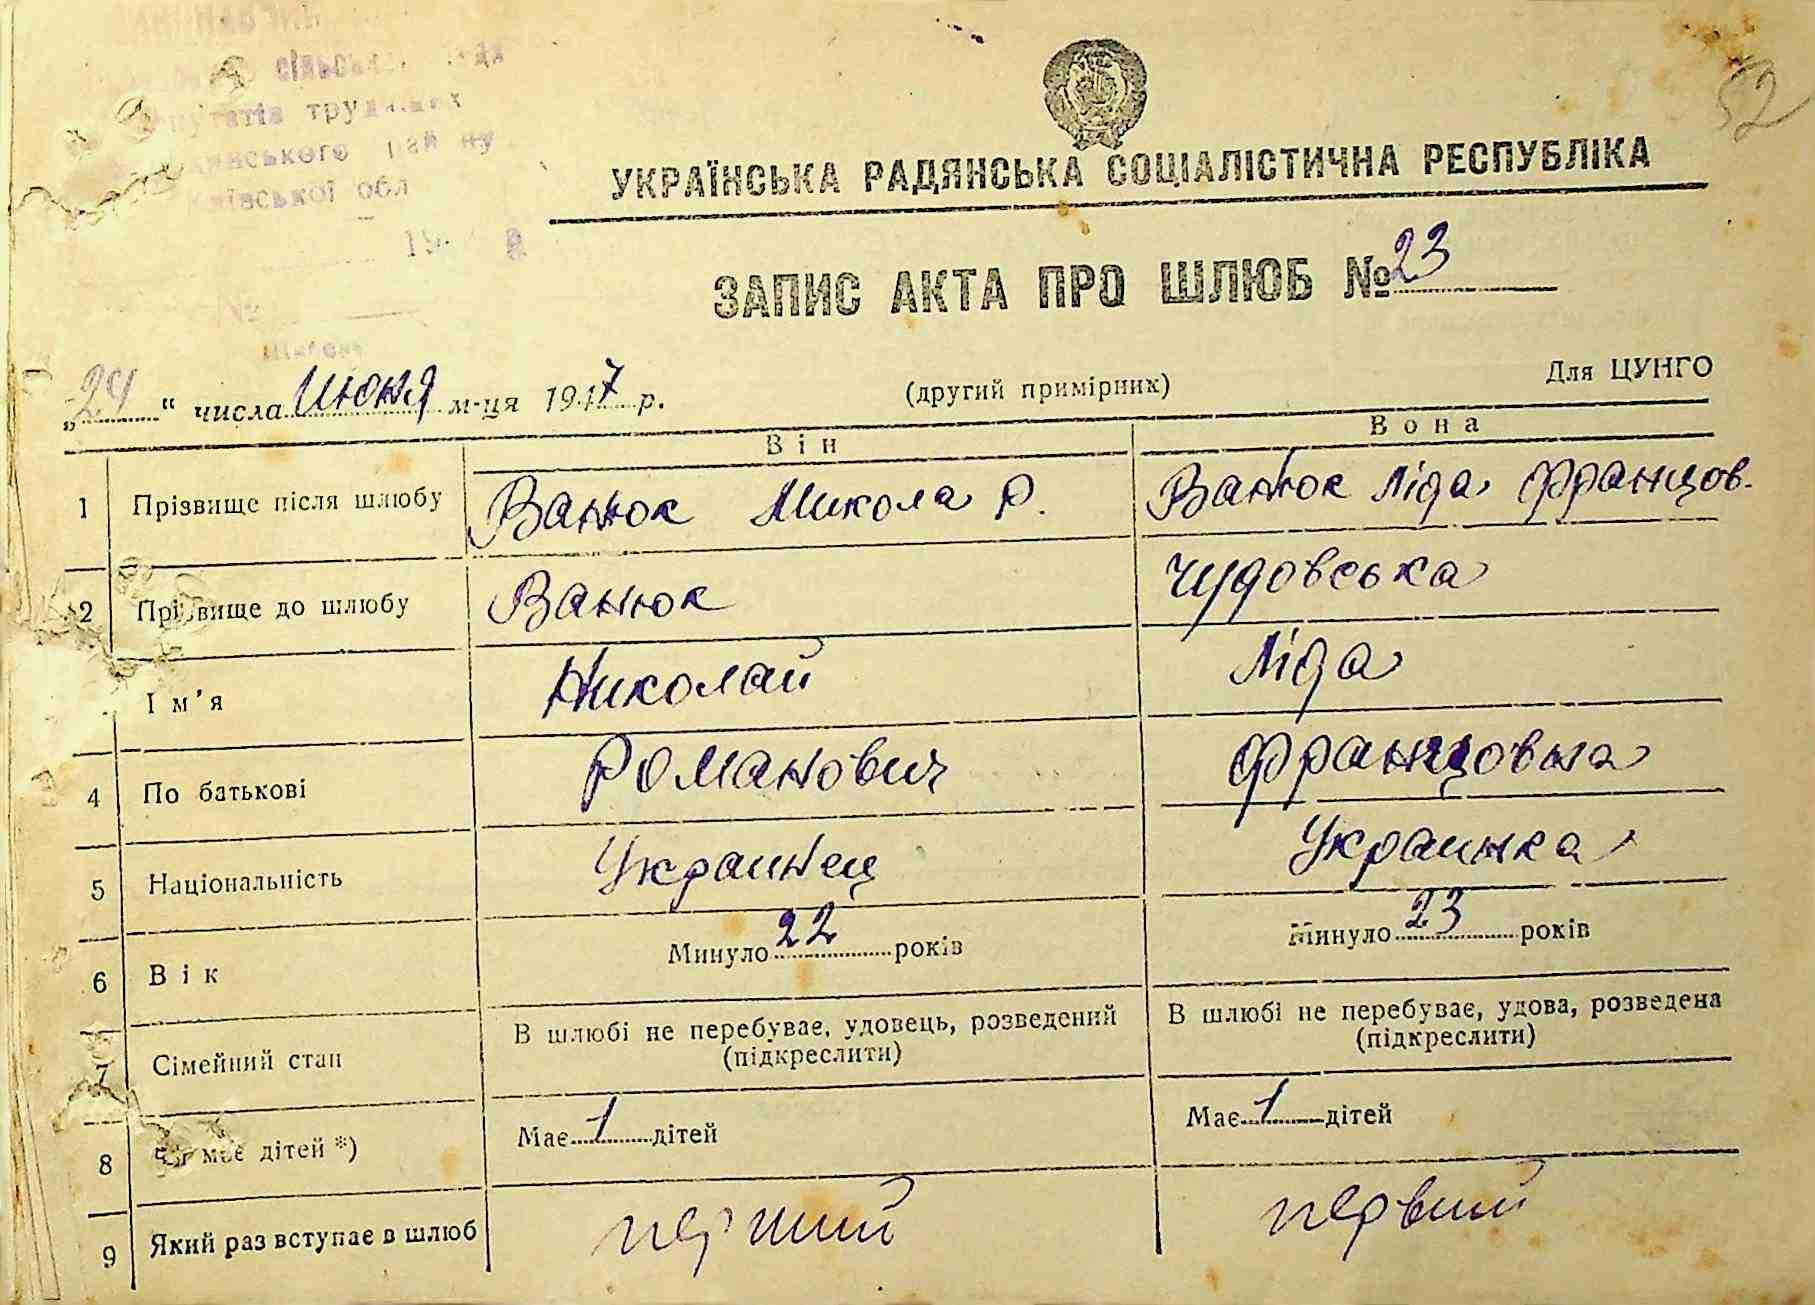 52
депутатів трудящих
району
Київської обл
19
№
УКРАЇНСЬКА РАДЯНСЬКА СОЦІАЛІСТИЧНА РЕСПУБЛІКА
ЗАПИС АКТА ПРО ШЛЮБ № 23
„24“ числа Июня м-ця 1947 р. (другий примірник) Для ЦУНГО
Він Вона
1 Прізвище після шлюбу Ванюк Микола Р. Ванюк Ліда Францов.
2 Прізвище до шлюбу Ванюк Чудовська
Ім'я Николай Ліда
4 По батькові Романович Францовна
5 Національність Украинец Украинка
6 Вік Минуло 22 років Минуло 23 років
7 Сімейний стан В шлюбі не перебуває, удовець, розведений (підкреслити) В шлюбі не перебуває, удова, розведена (підкреслити)
8 Чи має дітей *) Має 1 дітей Має 1 дітей
9 Який раз вступає в шлюб перший первий